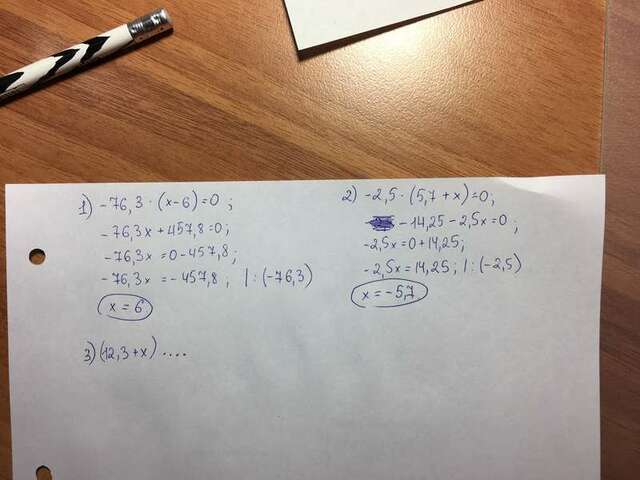 1) -76,3 · (x-6)=0 ;
-76,3x + 457,8=0 ;
-76,3x =0-457,8 ;
-76,3x =-457,8 ; | : (-76,3)
x = 6
2) -2,5 · (5,7+x)=0 ;
-14,25-2,5x=0 ;
-2,5x=0+14,25;
-2,5x=14,25 ; | : (-2,5)
x=-5,7
3) (12,3+x) ....